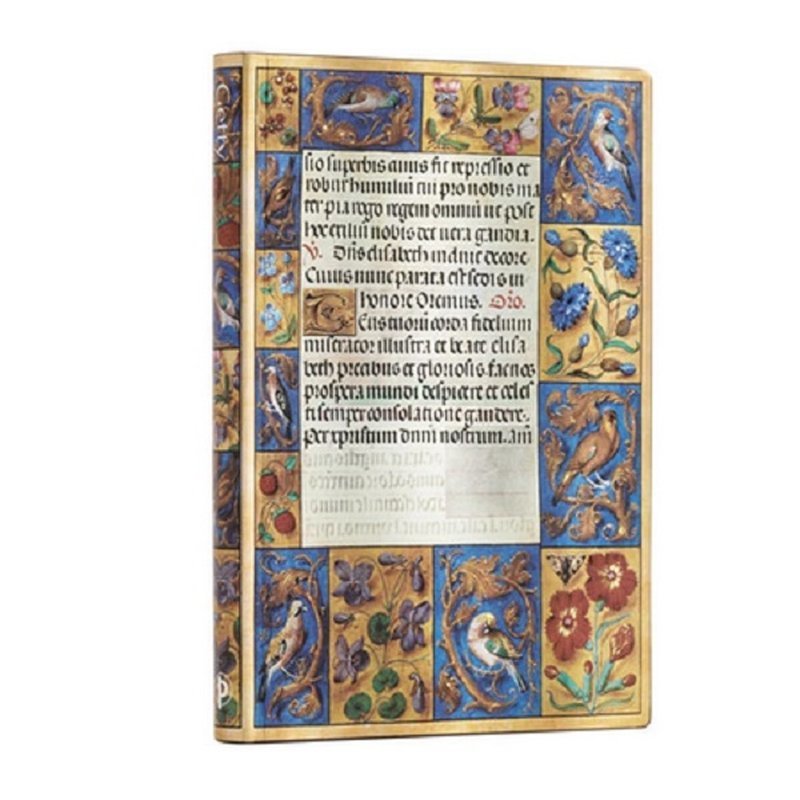 sio superbis cuius fit repressio et
robur humiliū cui pro nobis ma
ter pia rogo regem omniū ut post
hoc exiliū nobis det uera gaudia.
V. Dn̄s elisabeth induit decore
Cuius nunc parata est sedis in
honore Oremus. Oro.
Deus tuorū corda fidelium
miserator illustra et beate elisa
beth precibus et gloriosis fac nos
prospera mundi despicere et celes
ti semper consolatione gaudere.
Per xpristum dn̄m nostrum. am̄
P